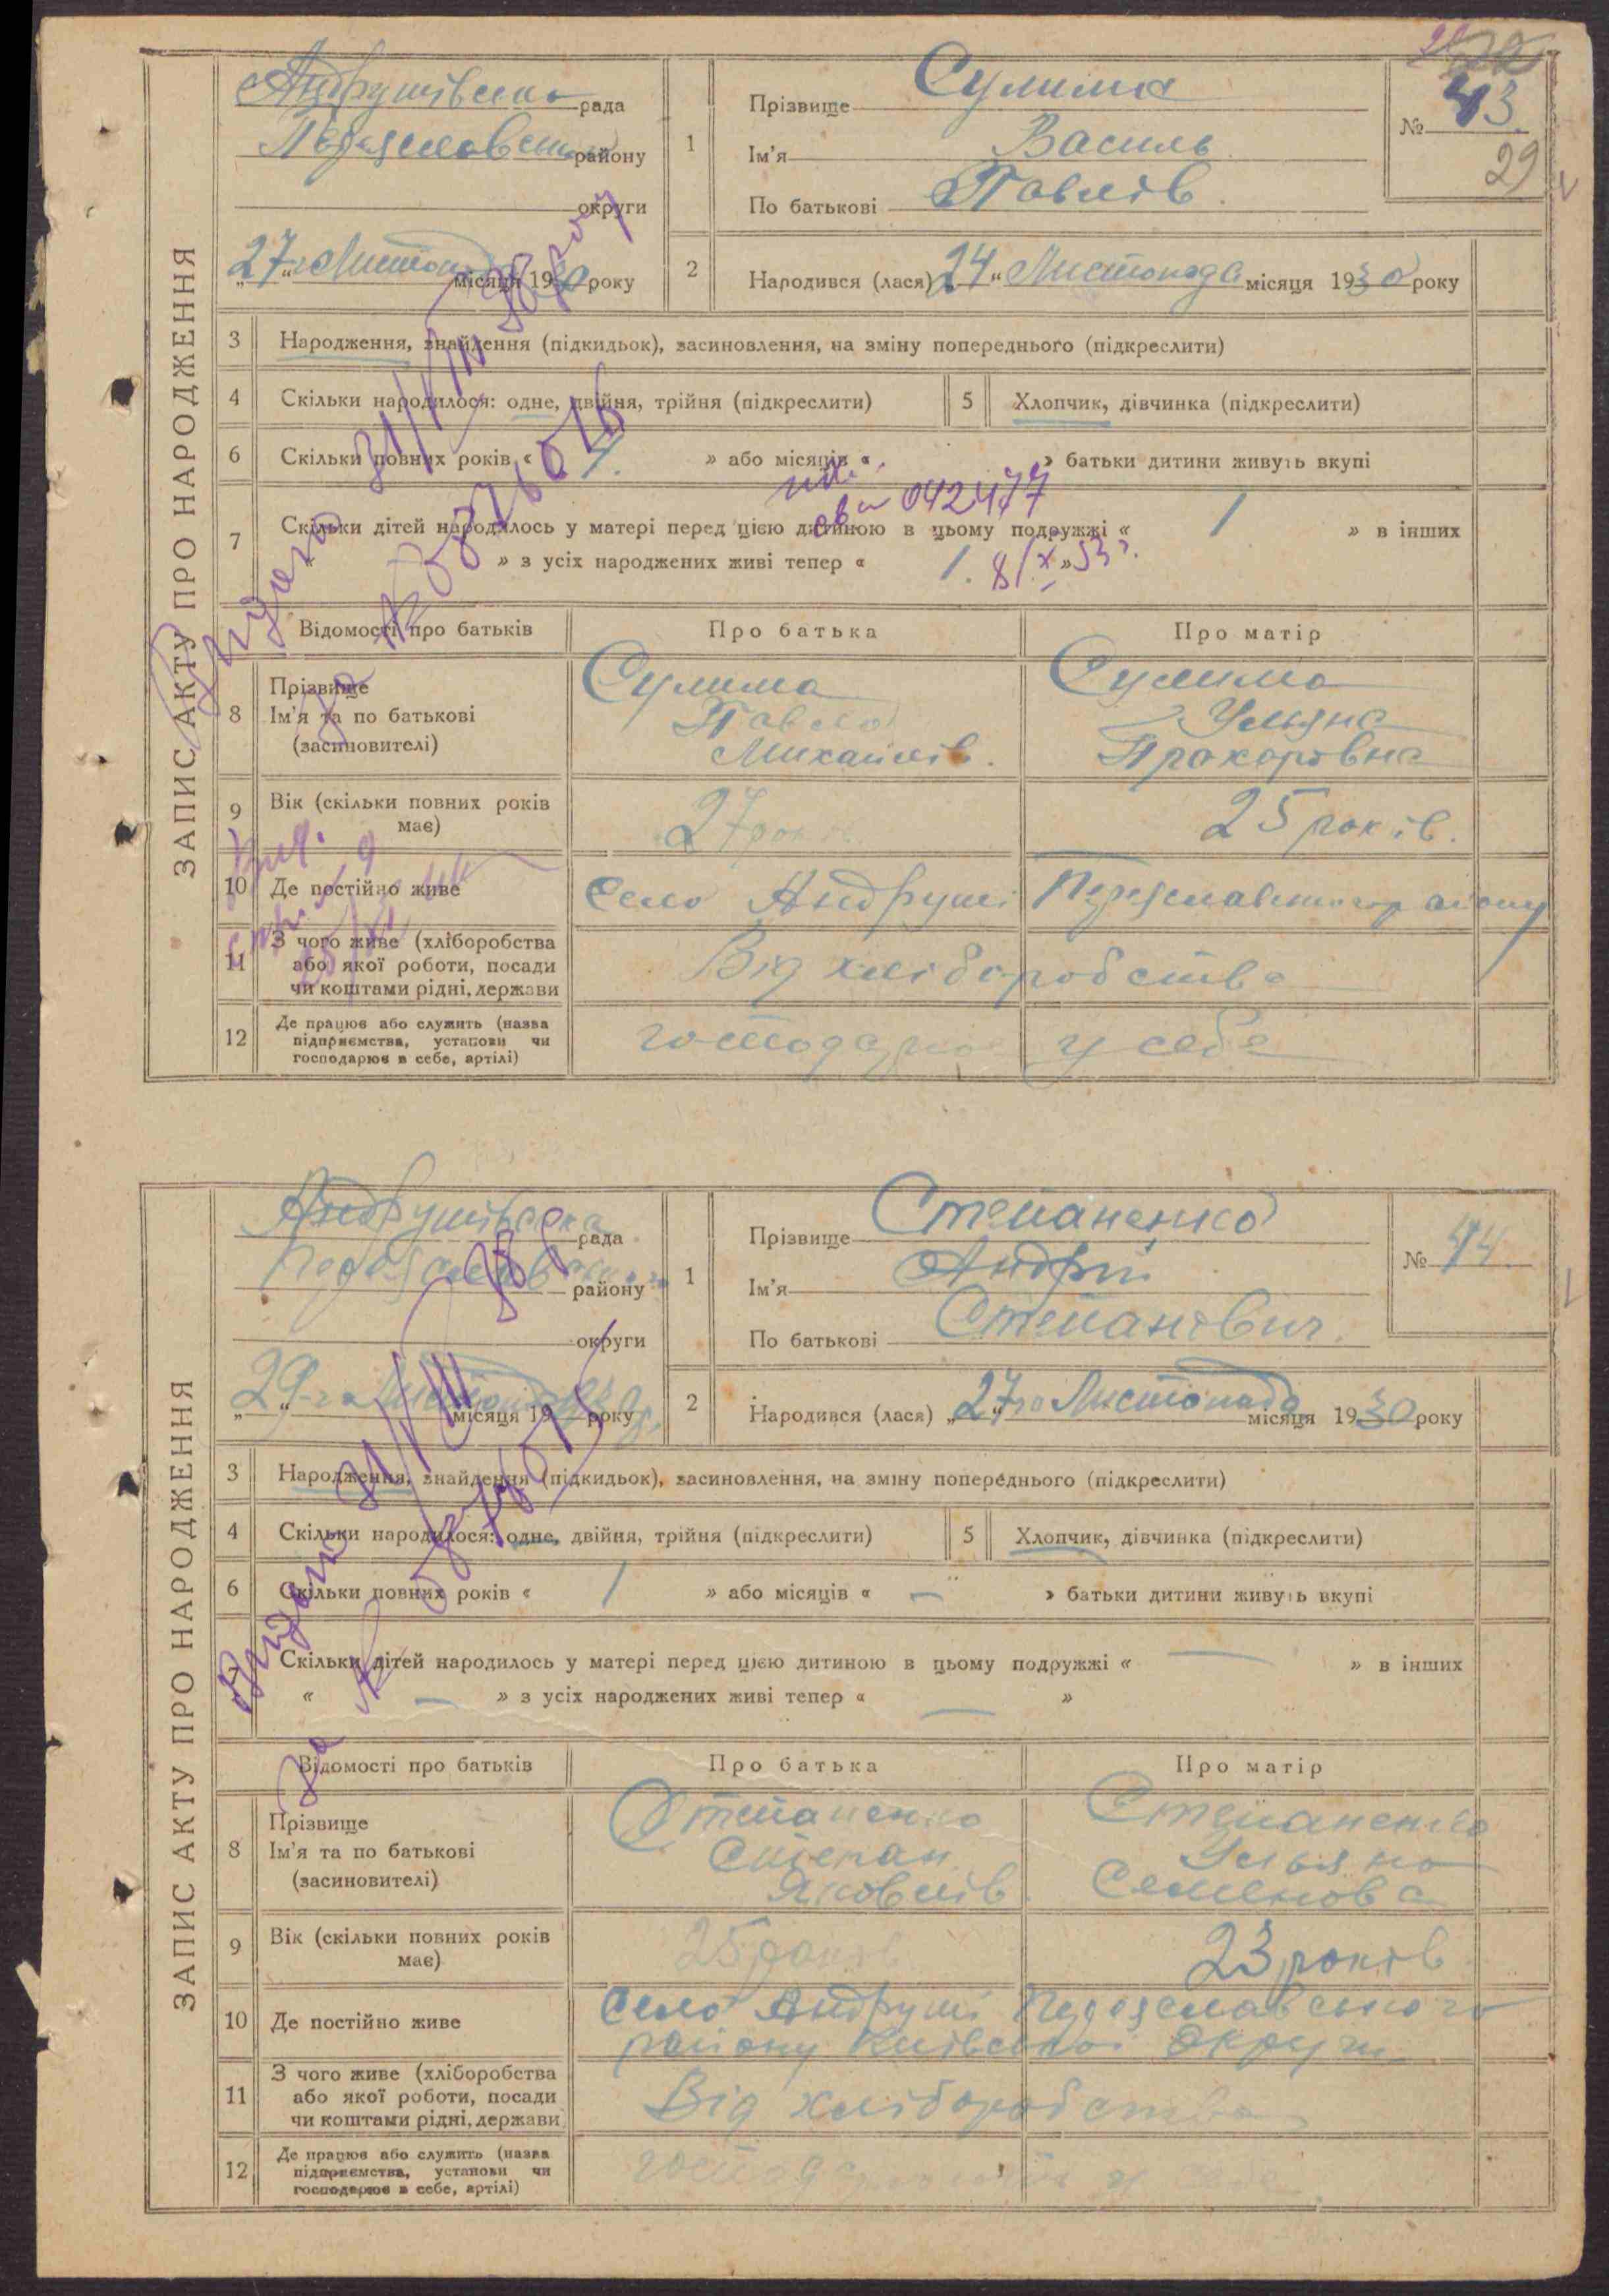 ЗАПИС АКТУ ПРО НАРОДЖЕННЯ
Андрушівська рада
Переяславського району
округи
27го Листопада місяця 1930 року
1
Прізвище Сулима
Ім'я Василь
По батькові Павлів
№ 43
29
2
Народився (лася) 24 " Листопада місяця 1930 року
3 Народження, знайдення (підкидьок), засиновлення, на зміну попереднього (підкреслити)
4 Скільки народилося: одне, двійня, трійня (підкреслити) 5 Хлопчик, дівчинка (підкреслити)
6 Скільки повних років « 4. » або місяців « » батьки дитини живуть вкупі
042477
7 Скільки дітей народилось у матері перед цією дитиною в цьому подружжі « 1 » в інших
« » з усіх народжених живі тепер « 1. »
8/X 53 г.
Відомості про батьків Про батька Про матір
8 Прізвище
Ім'я та по батькові
(засиновителі)
Сулима
Павло
Михайлів.
Сулима
Уляна
Прохоровна
9 Вік (скільки повних років має)
27 років
25 років.
10 Де постійно живе
Село Андруші Переяславського району
11 З чого живе (хліборобства
або якої роботи, посади
чи коштами рідні, держави
Від хліборобства
12 Де працює або служить (назва
підприємства, установи чи
господарює в себе, артілі)
господарює у себе
ЗАПИС АКТУ ПРО НАРОДЖЕННЯ
Андрушівська рада
Переяславського району
округи
29-го Листопада місяця 1930 року
1
Прізвище Степаненко
Ім'я Андрій
По батькові Степанович.
№ 44
2
Народився (лася) „27го Листопада місяця 1930 року
3 Народження, знайдення (підкидьок), засиновлення, на зміну попереднього (підкреслити)
4 Скільки народилося: одне, двійня, трійня (підкреслити) 5 Хлопчик, дівчинка (підкреслити)
6 Скільки повних років « 1 » або місяців « — » батьки дитини живуть вкупі
7 Скільки дітей народилось у матері перед цією дитиною в цьому подружжі « — » в інших
« — » з усіх народжених живі тепер « — »
Відомості про батьків Про батька Про матір
8 Прізвище
Ім'я та по батькові
(засиновителі)
Степаненко
Степан
Яковлів
Степаненко
Ульяна
Семенова
9 Вік (скільки повних років має)
25 років
23 років
10 Де постійно живе
Село Андруші Переяславського
району Київської округи
11 З чого живе (хліборобства
або якої роботи, посади
чи коштами рідні, держави
Від хліборобства
12 Де працює або служить (назва
підприємства, установи чи
господарює в себе, артілі)